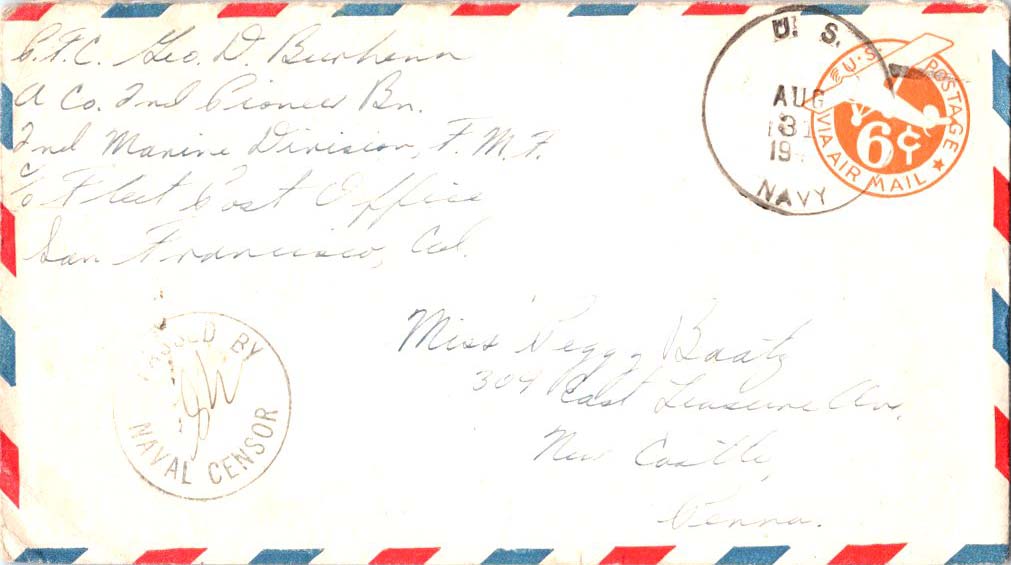 P.F.C. Geo. D. Burhenn
A Co. 2nd Pioneer Bn.
2nd Marine Division, F.M.F.
c/o Fleet Post Office
San Francisco, Cal.
U. S.
AUG
31
19
NAVY
U.S. POSTAGE
6¢
VIA AIR MAIL
PASSED BY
NAVAL CENSOR
Miss Peggy Baatz
309 East Leasure Ave.
New Castle,
Penna.